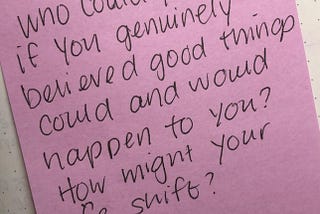 who could
if you genuinely
believed good things
could and would
happen to you?
How might your
shift?